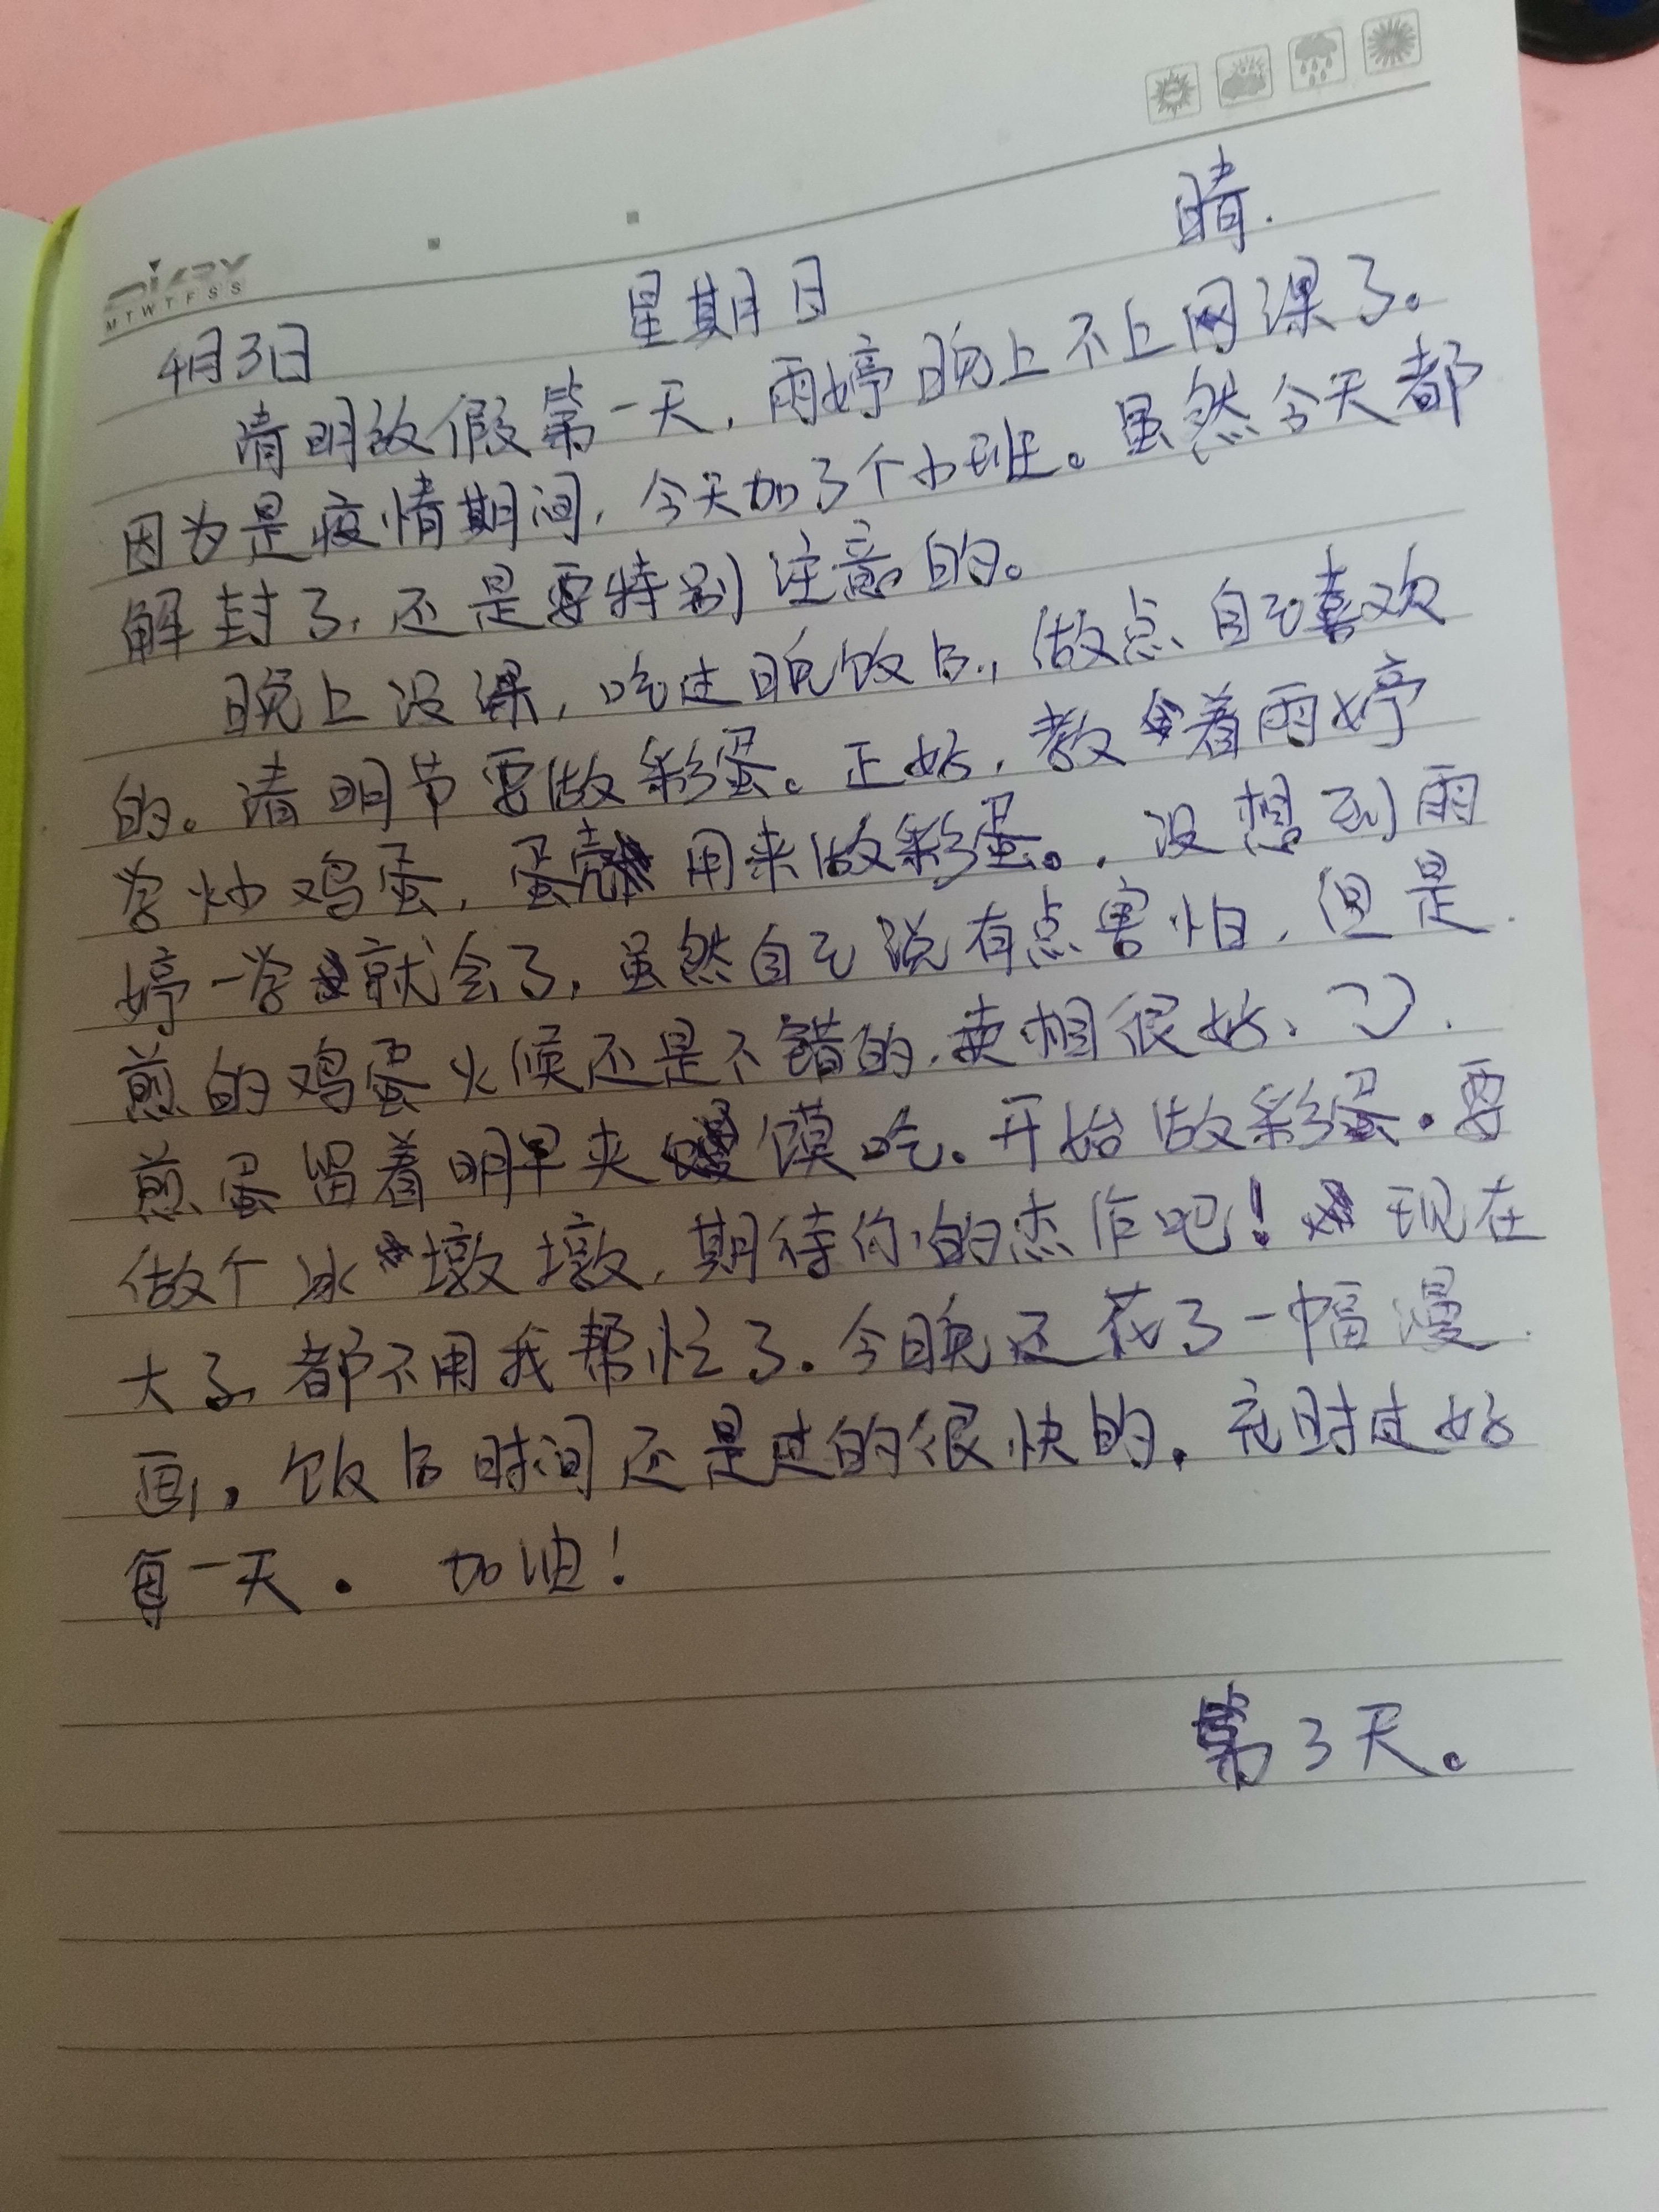 晴.
DIARY
M T W T F S S
4月3日 星期日
清明放假第一天，雨婷晚上不上网课了。
因为是疫情期间，今天加了个小班。虽然今天都
解封了，还是要特别注意的。
晚上没课，吃过晚饭后，做点自己喜欢
的。清明节要做彩蛋。正好，教着雨婷
学炒鸡蛋，蛋壳用来做彩蛋。没想到雨
婷一学就会了，虽然自己说有点害怕，但是
煎的鸡蛋火候还是不错的，卖相很好、
煎蛋留着明早夹馍吃。开始做彩蛋.要
做个冰墩墩，期待你的杰作吧！现在
大了，都不用我帮忙了.今晚还花了一幅漫
画，饭后时间还是过的很快的。充时过好
每一天. 加油！
第3天。